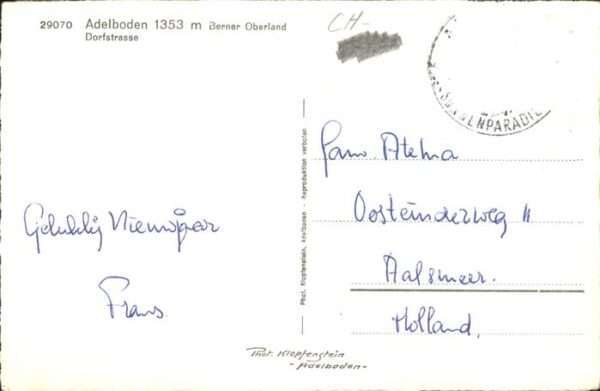 29070 Adelboden 1353 m Berner Oberland
Dorfstrasse
CH-
Gelukkig Nieuwjaar
Frans
Phot. Klopfenstein, Adelboden - Reproduktion verboten
Fam. Atema
Oosteinderweg 11
Aalsmeer.
Holland.
Phot. Klopfenstein
-Adelboden-